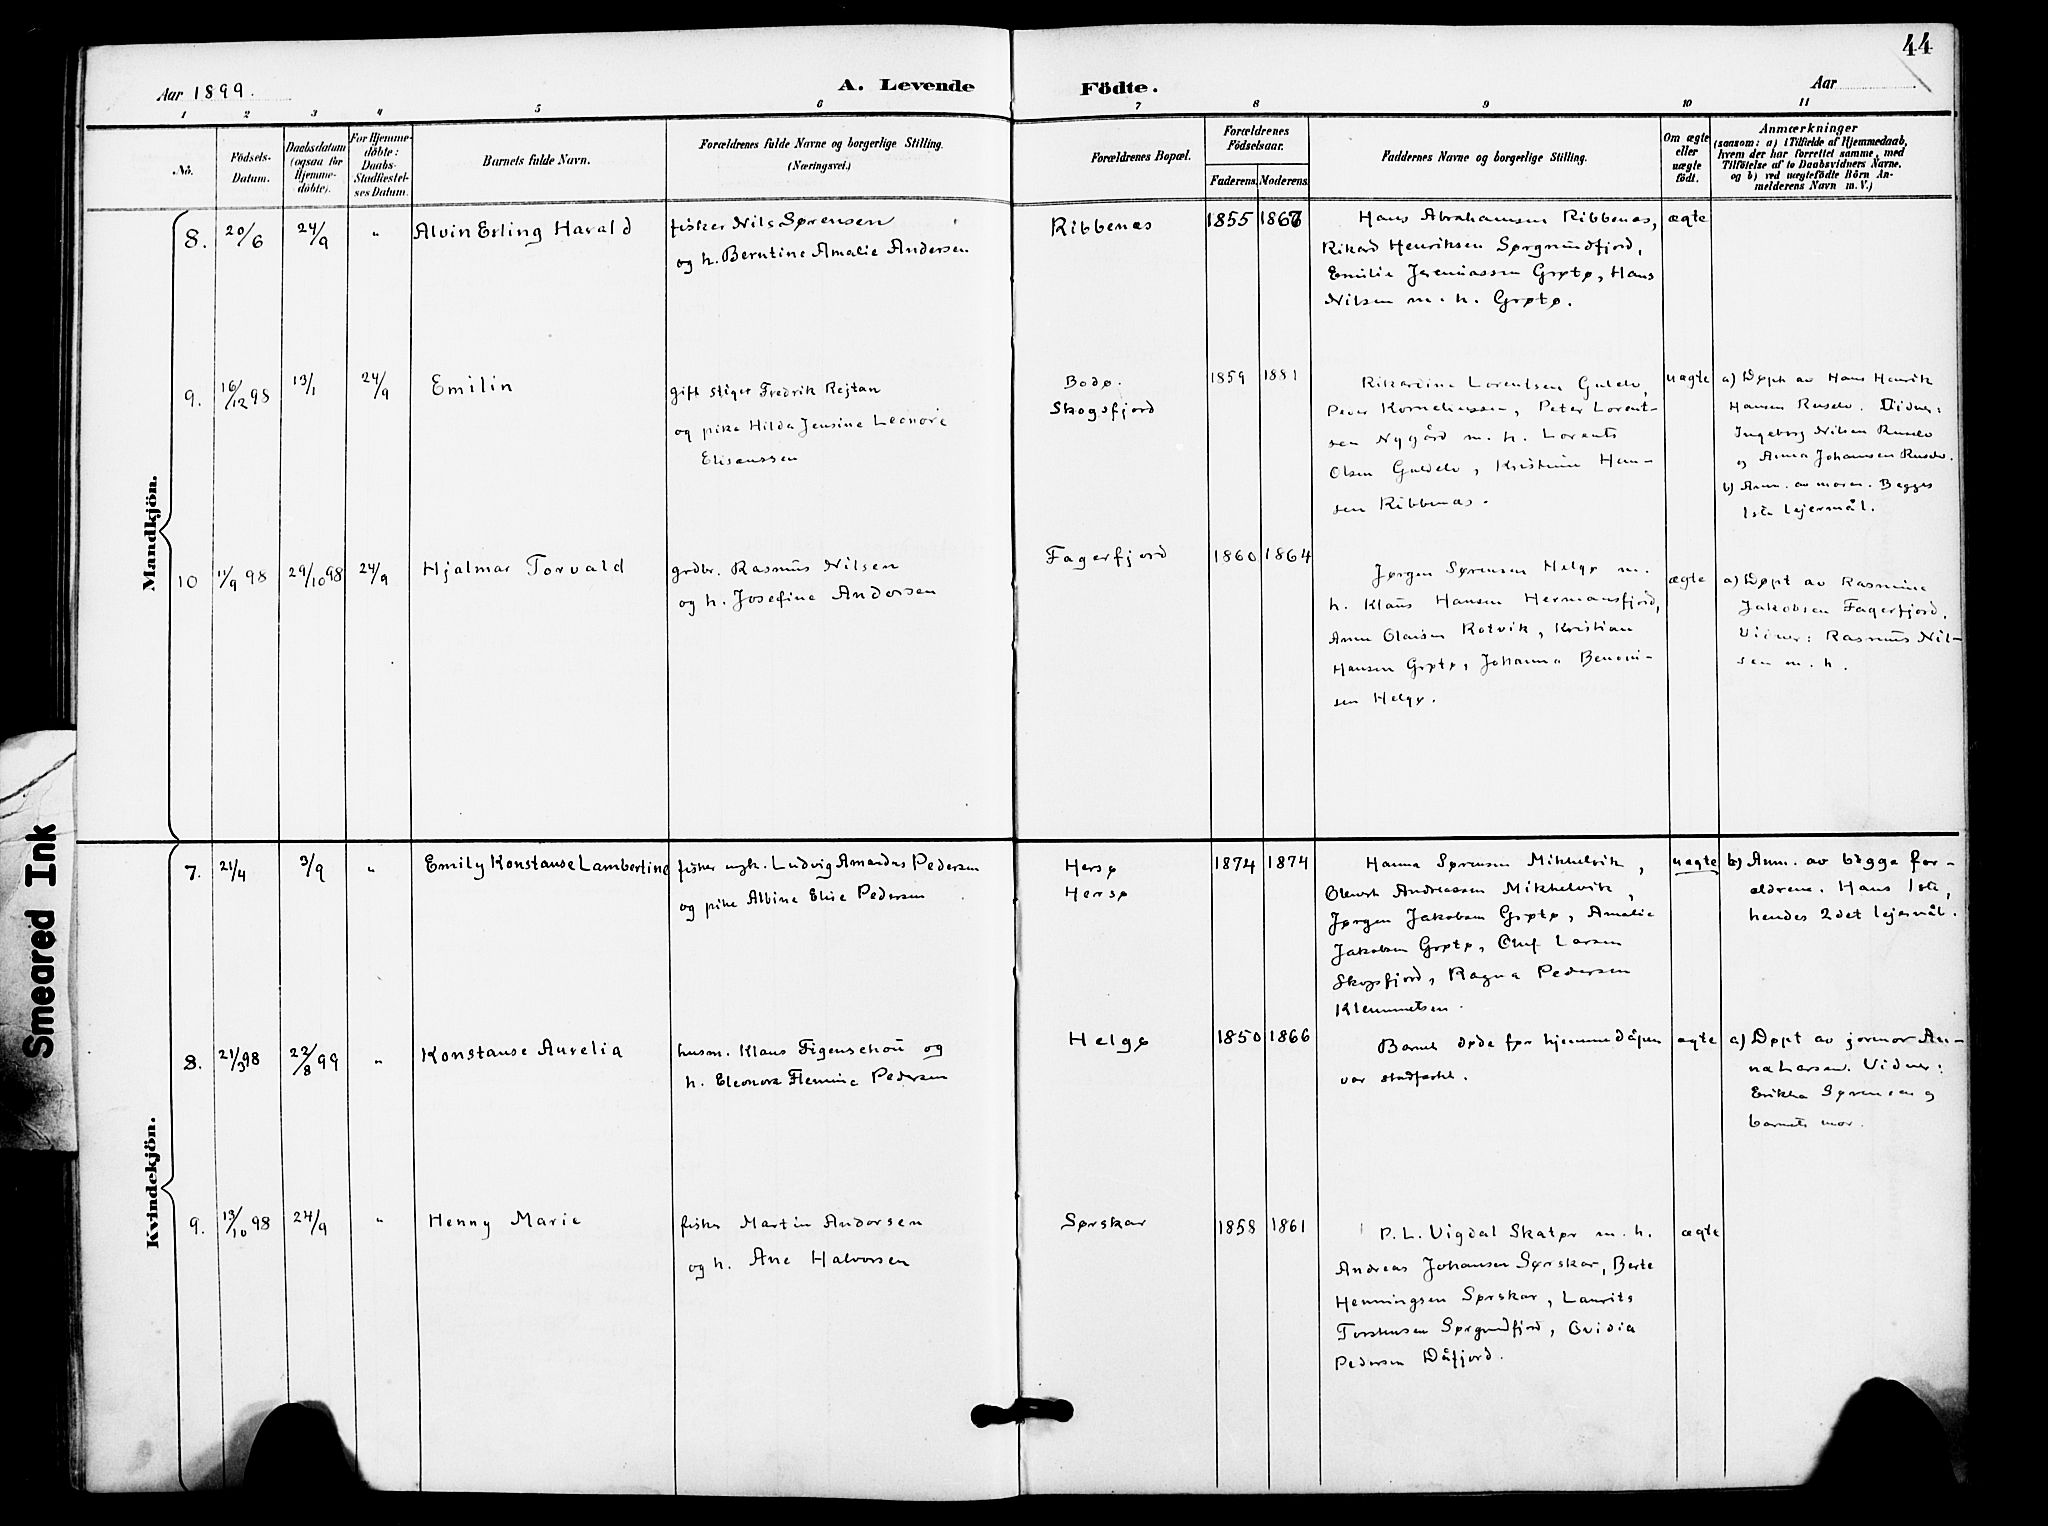 44
Aar 1899.
A. Levende Födte.
Aar
1 2 3 4 5 6 7 8 9 10 11
No.
Födsels-
Datum.
Daabsdatum
(ogsaa för
Hjemme-
döbte).
For Hjemme-
döbte:
Daabs-
Stadfæstel-
ses Datum.
Barnets fulde Navn.
Forældrenes fulde Navne og borgerlige Stilling.
(Næringsvei.)
Forældrenes Bopæl.
Forældrenes
Födselsaar.
Faderens. Moderens.
Faddernes Navne og borgerlige Stilling.
Om ægte
eller
uægte
födt.
Anmærkninger
(saasom: a) i Tilfælde af Hjemmedaab,
hvem der har forrettet samme, med
Tilföielse af to Daabsvidners Navne.
og b) ved uægtefödte Börn An-
melderens Navn m. V.)
Mandkjön.
8. 20/6 24/9 " Alvin Erling Harald
fisker Nils Sørensen
og h. Berntine Amalie Andersen
Ribbenas 1855 1867
Hans Abrahamsen Ribbenas,
Rikard Henriksen Sørgrundfjord,
Emilie Jeremiassen Grøtø, Hans
Nilsen m. h. Grøtø.
ægte
9. 16/12 98 13/1 24/9 Emilin
gift stiger Fredrik Rejtan
og pike Hilda Jensine Leonore
Eliseussen
Bodø.
Skogsfjord
1859 1881
Rikardine Lorentsen Guldelv,
Peder Korneliussen, Peter Lorent-
sen Nygård m. h. Lorents
Olsen Guldelv, Kristine Han-
sen Ribbenas.
uægte
a) Døpt av Hans Henrik
Hansen Ruselv. Vidner:
Ingeborg Nilsen Ruselv
og Anna Johansen Ruselv.
b) Anm. av moren. Begges
1ste lejermål.
10 11/9 98 29/10 98 24/9 Hjalmar Torvald
grdbr. Rasmus Nilsen
og h. Josefine Andersen
Fagerfjord 1860 1864
Jørgen Sørensen Helgø m.
h. Klaus Hansen Hermansfjord,
Anna Olaisen Rotvik, Kristian
Hansen Grøtø, Johanna Benoni-
sen Helgø.
ægte
a) Døpt av Rasmine
Jakobsen Fagerfjord.
Vidner: Rasmus Nil-
sen m. h.
Kvindekjön.
7. 21/4 3/9 " Emily Konstanse Lambertine
fisker ugk. Ludvig Amandus Pedersen
og pike Albine Elise Pedersen
Hersø
Hersø
1874 1874
Hanna Sørensen Mikkelvik,
Oluert Andreassen Mikkelvik,
Jørgen Jakobsen Grøtø, Amalie
Jakobsen Grøtø, Oluf Larsen
Skogsfjord, Ragna Pedersen
Klemmetsen.
uægte
b) Anm. av begge for-
ældrene. Hans 1ste,
hendes 2det lejermål.
8. 21/3 98 22/8 99 " Konstanse Aurelia
husm. Klaus Figenschou og
h. Eleonora Flemine Pedersen
Helgø 1850 1866
Barnet døde før hjemmedåpen
var stadfæstet.
ægte
a) Døpt av jormor An-
na Larsen. Vidner:
Erikka Sørensen og
barnets mor.
9. 13/10 98 24/9 " Henny Marie
fisker Martin Andersen
og h. Ane Halvorsen
Sørskar 1858 1861
P. L. Vigdal Skatør m. h.
Andreas Johansen Sørskar, Berte
Henningsen Sørskar, Laurits
Torstensen Sørgrundfjord, Ovidia
Pedersen Dåfjord.
ægte
Smeared Ink